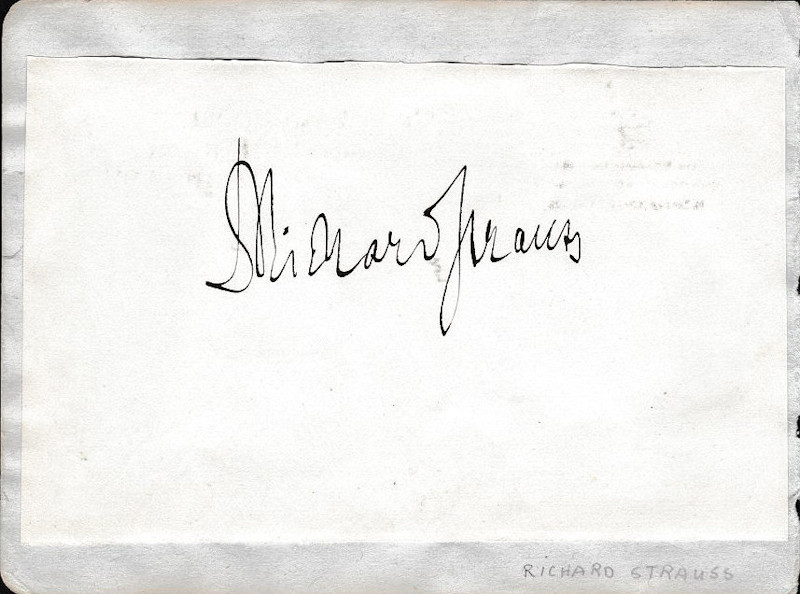 Richard Strauss
RICHARD STRAUSS